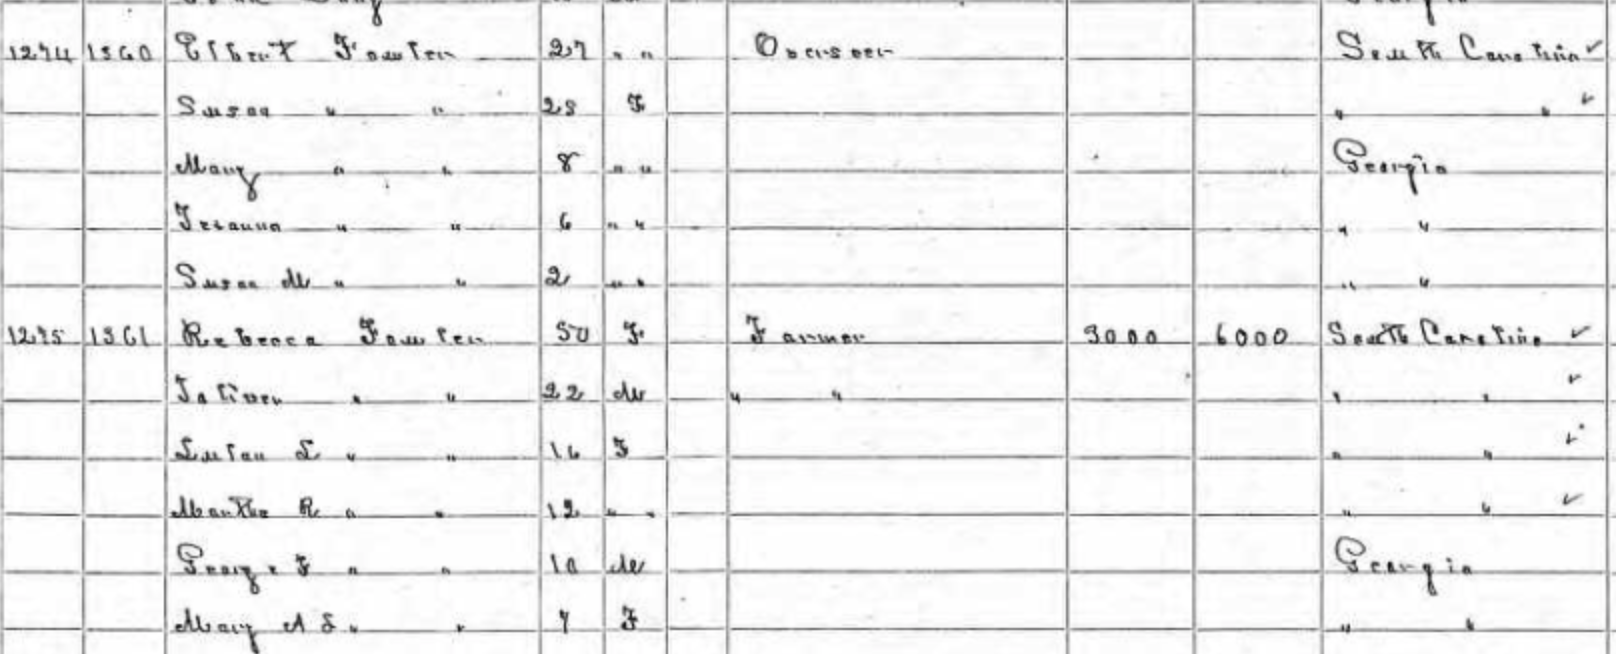 1274 1360 Elbert Fowler 27 " " Overseer South Carolina ✓
Susan " " 25 F " " ✓
Mary " " 8 " " Georgia
" " 6 " " " "
Susan M " " 2 " " " "
1275 1361 Rebecca Fowler 50 F Farmer 3000 6000 South Carolina ✓
Toliver " " 22 M " " " " ✓
L " " 16 F " " ✓
Martha R " " 12 " " " " ✓
George F " " 10 M Georgia
Mary A S " " 7 F " "